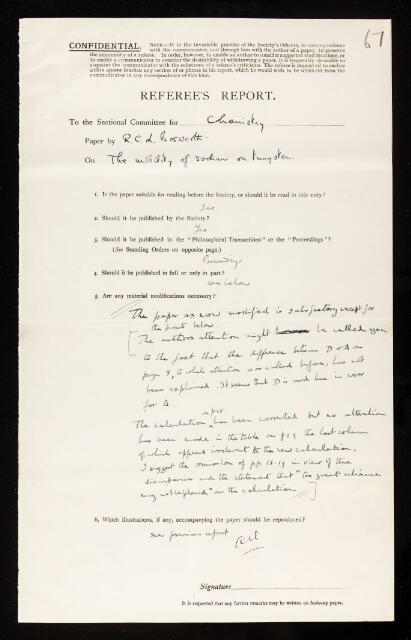 67
CONFIDENTIAL. NOTE.—It is the invariable practice of the Society's Officers, in correspondence
with the communicator, and through him with the author of a paper, to preserve
the anonymity of a referee. In order, however, to enable an author to consider suggested modifications, or
to enable a communicator to consider the desirability of withdrawing a paper, it is frequently desirable to
acquaint the communicator with the substance of a referee's criticisms. The referee is requested to enclose
within square brackets any section of or phrase in his report, which he would wish to be withheld from the
communicator in any correspondence of this kind.
REFEREE'S REPORT.
To the Sectional Committee for Chemistry
Paper by R.C.L. Bosworth
On The mobility of sodium on tungsten.
1. Is the paper suitable for reading before the Society, or should it be read in title only?
Yes
2. Should it be published by the Society?
Yes
3. Should it be published in the "Philosophical Transactions" or the "Proceedings"?
(See Standing Orders on opposite page.)
Proceedings
4. Should it be published in full or only in part?
see below
5. Are any material modifications necessary?
The paper as now modified is satisfactory except for
the points below
[The authors attention might be called again
to the fact that the difference between D and Δ on
page 9, to which attention was called before, has not
been explained. It seems that D is used here in error
for Δ.
The calculation on p18 has been corrected but no alteration
has been made in the table on p19 the last column
of which appears irrelevant to the new calculation.
I suggest the omission of pp. 18-19 in view of these
discrepancies and the statement that "too great reliance
may not be placed" on the calculation]
6. Which illustrations, if any, accompanying the paper should be reproduced?
see previous report
Signature
It is requested that any further remarks may be written on foolscap paper.